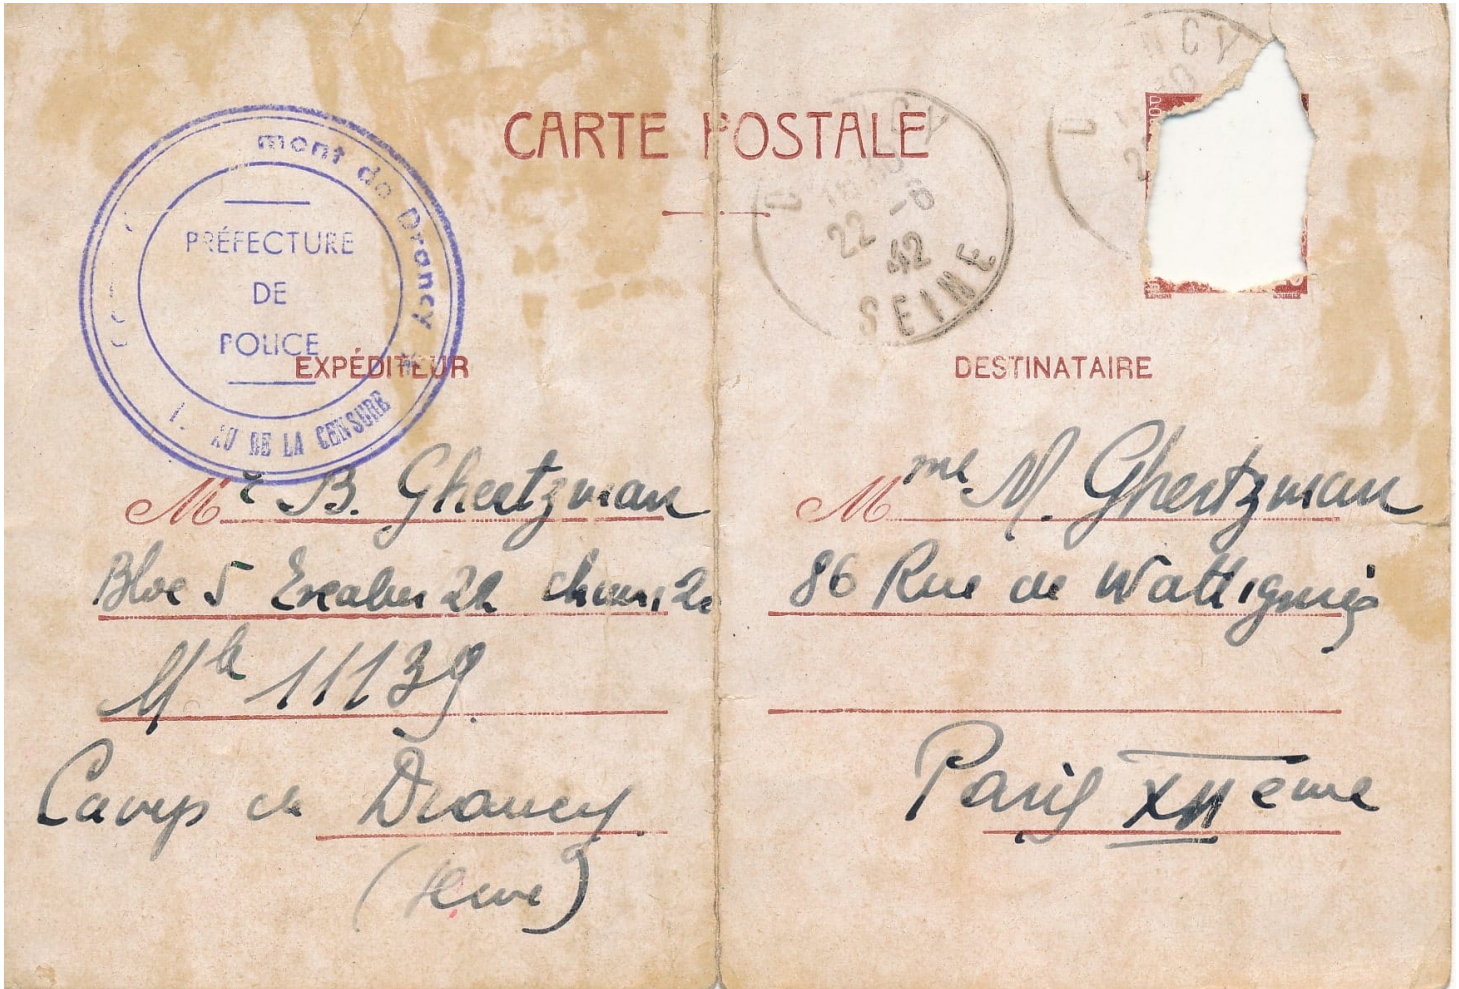 CARTE POSTALE
mont de Drancy *
PRÉFECTURE
DE
POLICE
AU DE LA CENSURE
22 -6
42
SEINE
NCY
EXPÉDITEUR
Mr B. Ghertzman
Bloc 5 Escalier 22 chambre 2
Mle 11139
Camp de Drancy
(Seine)
DESTINATAIRE
Mme M. Ghertzman
86 Rue de Wattignies
Paris XIIeme